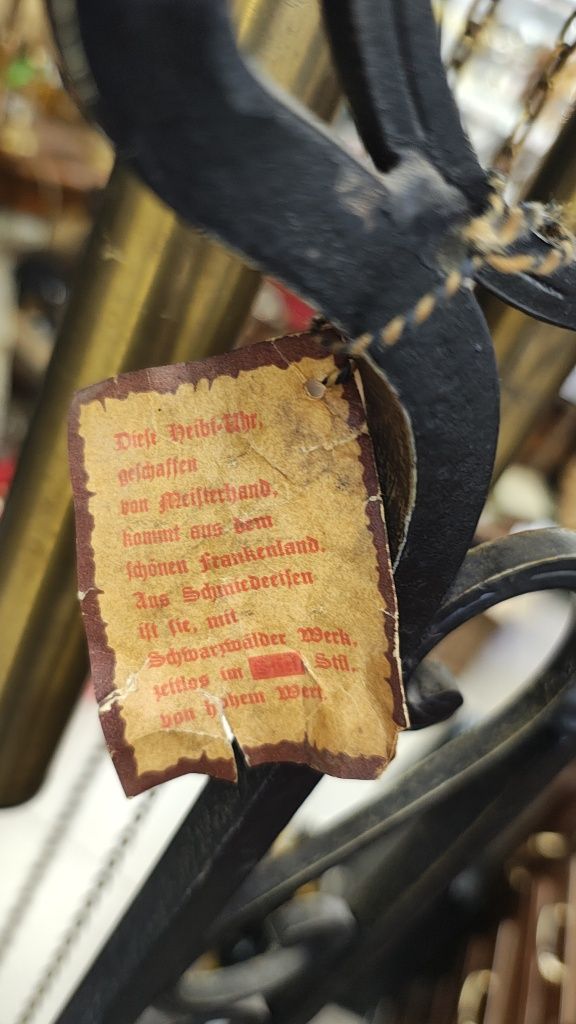 Diese Heibi-Uhr,
geschaffen
von Meisterhand,
kommt aus dem
schönen Frankenland.
Aus Schmiedeeisen
ist sie, mit
Schwarzwälder Werk,
zeitlos im Stil,
von hohem Wert